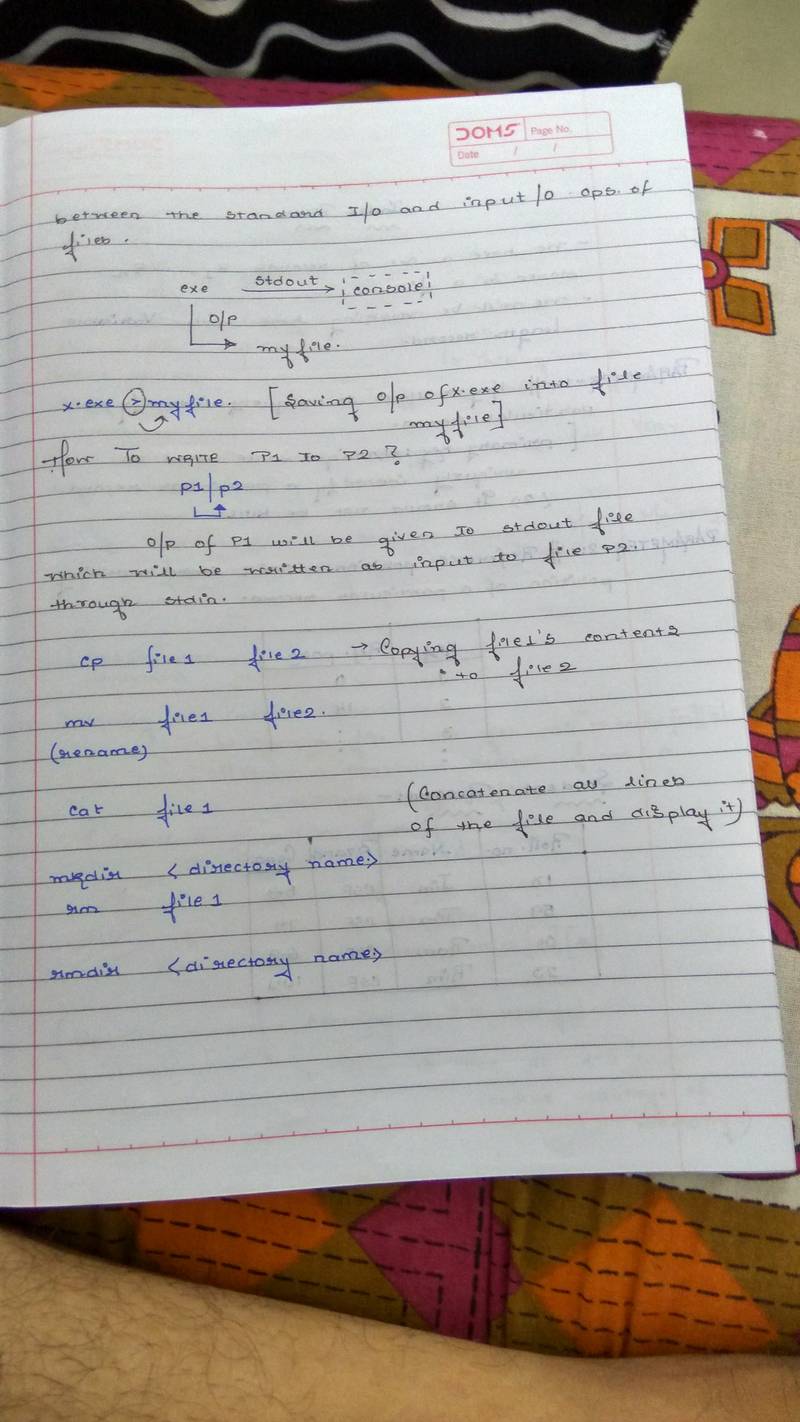 DOMS
Page No.
Date / /
between the standard I/O and input/o ops. of
files.
exe stdout console
O/P
myfile.
x.exe > myfile. [Saving o/p of x.exe into file
myfile]
How To WRITE P1 TO P2 ?
P1 | P2
O/p of P1 will be given To stdout file
which will be written as input to file P2.
through stdin.
cp file1 file2 → Copying file1's contents
to file2
mv file1 file2.
(rename)
cat file1 (Concatenate all lines
of the file and display it)
mkdir <directory name>
rm file1
rmdir <directory name>